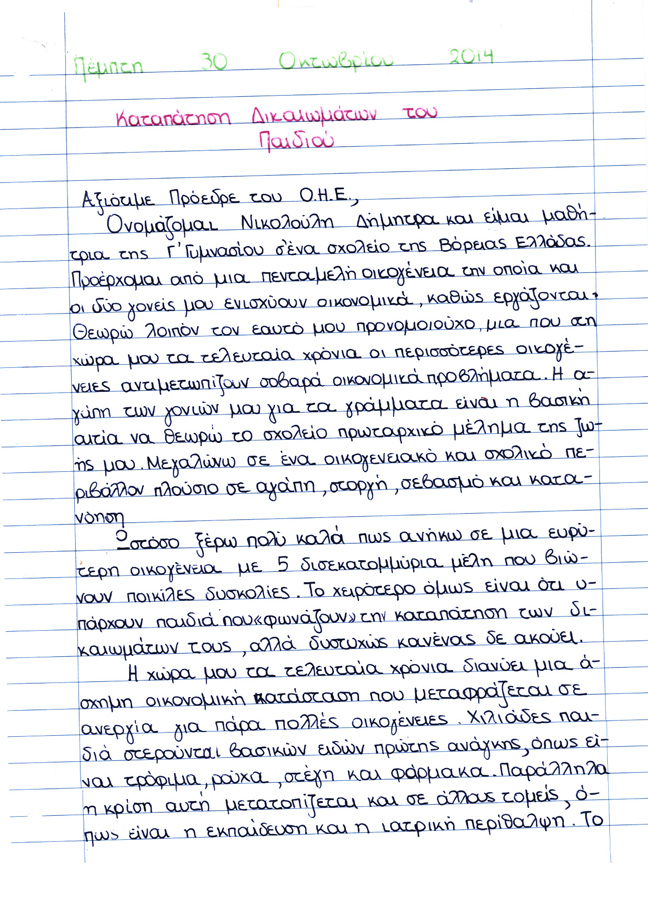 Πέμπτη 30 Οκτωβρίου 2014
Καταπάτηση Δικαιωμάτων του
Παιδιού
Αξιότιμε Πρόεδρε του Ο.Η.Ε.,
Ονομάζομαι Νικολούλη Δήμητρα και είμαι μαθή-
τρια της Γ' Γυμνασίου σ'ένα σχολείο της Βόρειας Ελλάδας.
Προέρχομαι από μια πενταμελή οικογένεια την οποία και
οι δύο γονείς μου ενισχύουν οικονομικά, καθώς εργάζονται.
Θεωρώ λοιπόν τον εαυτό μου προνομοιούχο, μια που στη
χώρα μου τα τελευταία χρόνια οι περισσότερες οικογέ-
νειες αντιμετωπίζουν σοβαρά οικονομικά προβλήματα. Η α-
γάπη των γονιών μου για τα γράμματα είναι η βασική
αιτία να θεωρώ το σχολείο πρωταρχικό μέλημα της ζω-
ής μου. Μεγαλώνω σε ένα οικογενειακό και σχολικό πε-
ριβάλλον πλούσιο σε αγάπη, στοργή, σεβασμό και κατα-
νόηση
Ωστόσο ξέρω πολύ καλά πως ανήκω σε μια ευρύ-
τερη οικογένεια με 5 δισεκατομμύρια μέλη που βιώ-
νουν ποικίλες δυσκολίες. Το χειρότερο όμως είναι ότι υ-
πάρχουν παιδιά που «φωνάζουν» την καταπάτηση των δι-
καιωμάτων τους, αλλά δυστυχώς κανένας δε ακούει.
Η χώρα μου τα τελευταία χρόνια διανύει μια ά-
σχημη οικονομική κατάσταση που μεταφράζεται σε
ανεργία για πάρα πολλές οικογένειες. Χιλιάδες παι-
διά στερούνται βασικών ειδών πρώτης ανάγκης, όπως εί-
ναι τρόφιμα, ρούχα, στέγη και φάρμακα. Παράλληλα
η κρίση αυτή μετατοπίζεται και σε άλλους τομείς, ό-
πως είναι η εκπαίδευση και η ιατρική περίθαλψη. Το